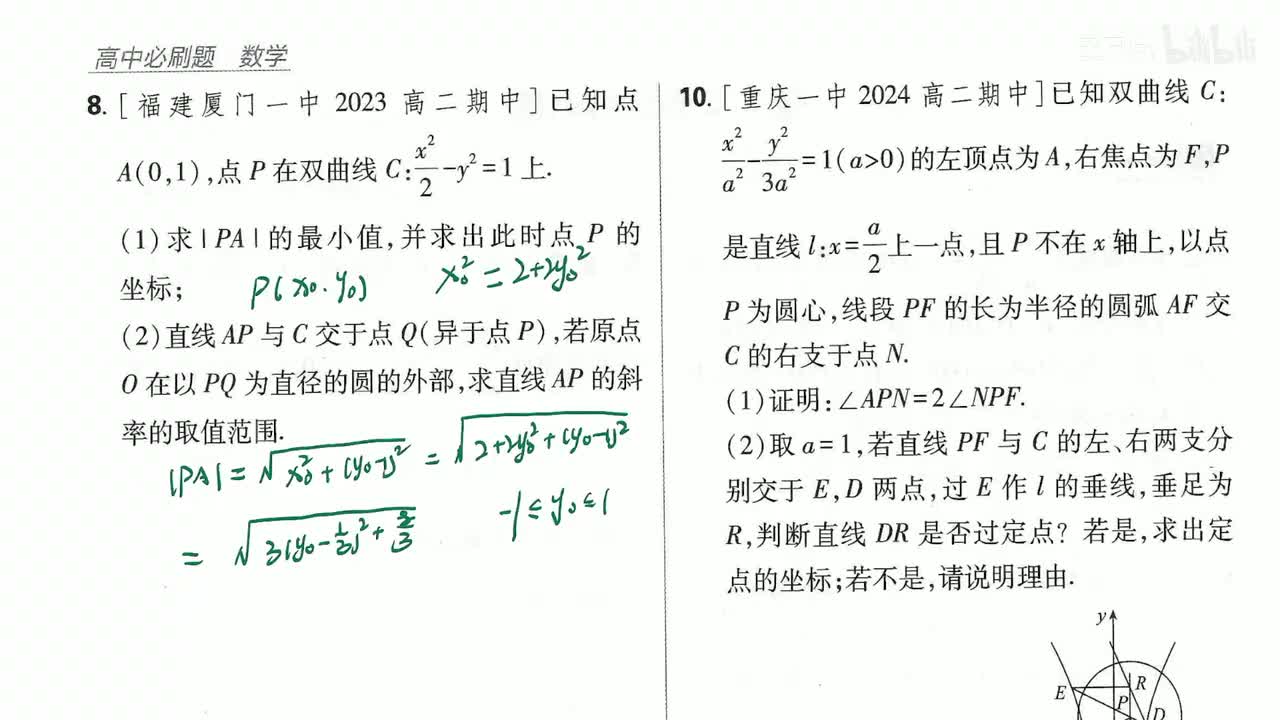 高中必刷题 数学
bilibili
8. [福建厦门一中 2023 高二期中]已知点
A(0,1),点 P 在双曲线 C:x²/2-y²=1 上.
(1)求|PA|的最小值,并求出此时点 P 的
坐标;
P(x₀.y₀) x₀²=2+2y₀²
(2)直线 AP 与 C 交于点 Q(异于点 P),若原点
O 在以 PQ 为直径的圆的外部,求直线 AP 的斜
率的取值范围.
|PA|=√(x₀²+(y₀-1)²)=√(2+2y₀²+(y₀-1)²)
=√(3(y₀-1/3)²+8/3) -1≤y₀≤1
10. [重庆一中 2024 高二期中]已知双曲线 C:
x²/a²-y²/3a²=1(a>0)的左顶点为 A,右焦点为 F,P
是直线 l:x=a/2上一点,且 P 不在 x 轴上,以点
P 为圆心,线段 PF 的长为半径的圆弧 AF 交
C 的右支于点 N.
(1)证明:∠APN=2∠NPF.
(2)取 a=1,若直线 PF 与 C 的左、右两支分
别交于 E,D 两点,过 E 作 l 的垂线,垂足为
R,判断直线 DR 是否过定点?若是,求出定
点的坐标;若不是,请说明理由.
y
E
R
P
D